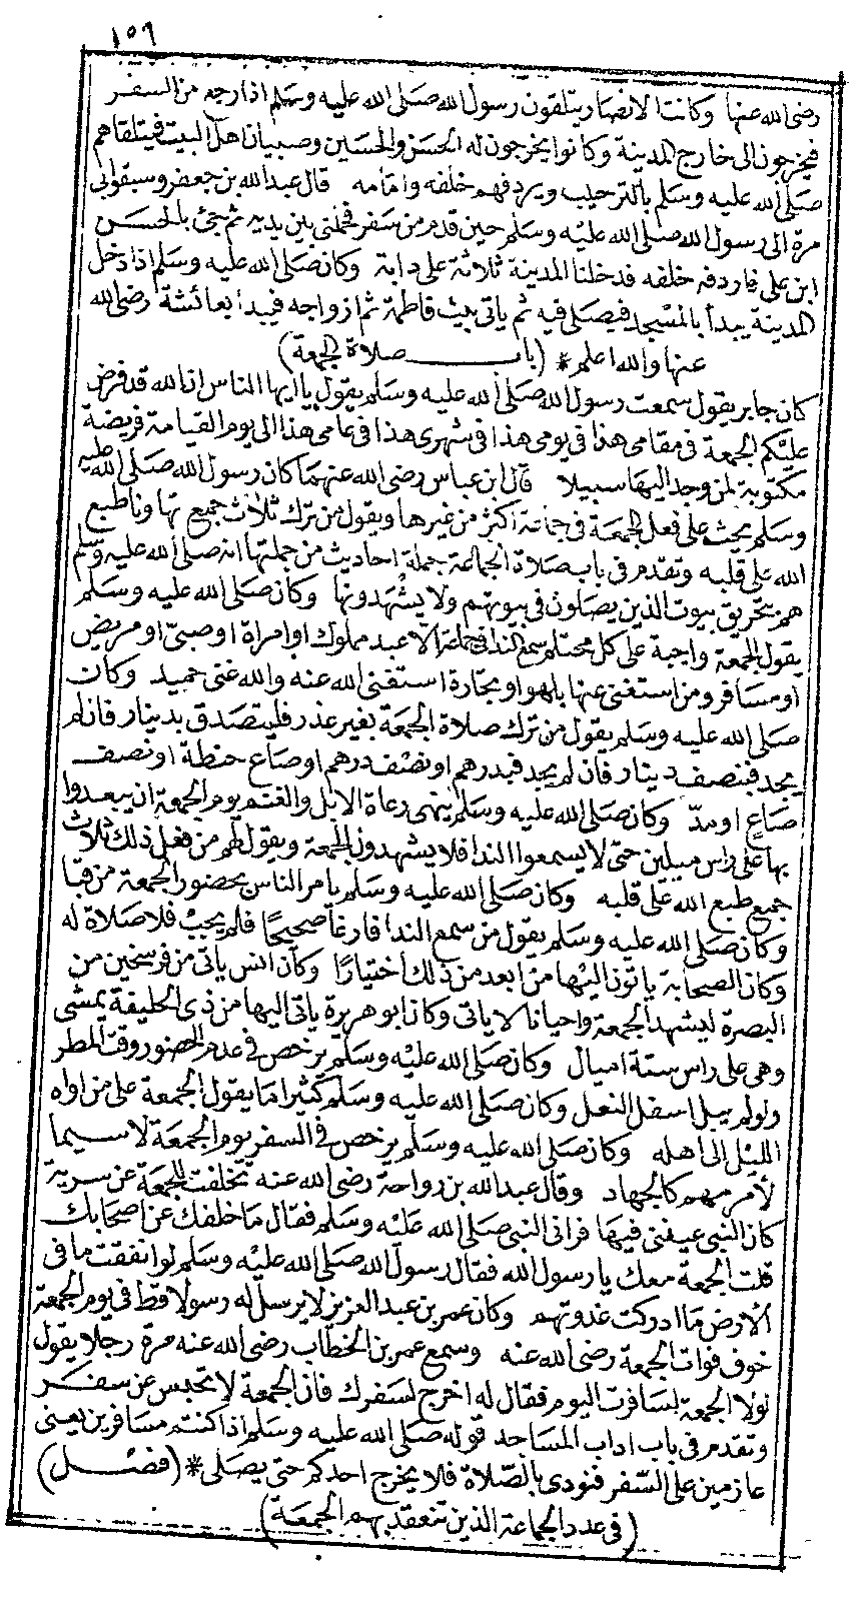 ١٥٦
رضى الله عنها وكانت الانصار يتلقون رسول الله صلى الله عليه وسلم اذا رجع من السفر
فيخرجون الى خارج المدينة وكانوا يخرجون له الحسن والحسين وصبيان اهل البيت فيتلقاهم
صلى الله عليه وسلم بالترحيب ويردفهم خلفه وامامه قال عبدالله بن جعفر وسبقوا بى
مرة الى رسول الله صلى الله عليه وسلم حين قدم من سفر فحملنى بين يديه ثم جئ بالحسن
ابن على فاردفه خلفه فدخلنا المدينة ثلاثة على دابة وكان صلى الله عليه وسلم اذا دخل
المدينة يبدأ بالمسجد فيصلى فيه ثم ياتى بيت فاطمة ثم ازواجه فيبدا بعائشة رضى الله
عنها والله اعلم * (باب صلاة الجمعة)
كان جابر يقول سمعت رسول الله صلى الله عليه وسلم يقول يا ايها الناس ان الله قد فرض
عليكم الجمعة فى مقامى هذا فى يومى هذا فى شهرى هذا فى عامى هذا الى يوم القيامة فريضة
مكتوبة لمن وجد اليها سبيلا قال ابن عباس رضى الله عنهما كان رسول الله صلى الله عليه
وسلم يحث على فعل الجمعة فى جماعة اكثر من غيرها ويقول من ترك ثلاث جمع تهاونا طبع
الله على قلبه وتقدم فى باب صلاة الجماعة جملة احاديث من جملتها انه صلى الله عليه وسلم
هم بتحريق بيوت الذين يصلون فى بيوتهم ولا يشهدونها وكان صلى الله عليه وسلم
يقول الجمعة واجبة على كل محتلم سمع الندا فى جماعة الا عبد مملوك او امراة او صبىّ او مريض
او مسافر ومن استغنى عنها بلهو او تجارة استغنى الله عنه والله غنى حميد وكان
صلى الله عليه وسلم يقول من ترك صلاة الجمعة بغير عذر فليتصدق بدينار فان لم
يجد فبنصف دينار فان لم يجد فبدرهم او نصف درهم او صاع حنطة او نصف
صاع او مدّ وكان صلى الله عليه وسلم ينهى رعاة الابل والغنم يوم الجمعة ان يبعدوا
بها على راس ميلين حتى لا يسمعوا الندا فلا يشهدون الجمعة ويقول لهم من فعل ذلك ثلاث
جمع طبع الله على قلبه وكان صلى الله عليه وسلم يامر الناس بحضور الجمعة من قبا
وكان صلى الله عليه وسلم يقول من سمع الندا فارغا صحيحًا فلم يجبْ فلا صلاة له
وكان الصحابة ياتون اليها من ابعد من ذلك اختيارًا وكان انس ياتى من فرسخين من
البصرة ليشهد الجمعة واحيانا لا ياتى وكان ابو هريرة ياتى اليها من ذى الحليفة يمشى
وهى على راس ستة اميال وكان صلى الله عليه وسلم يرخص فى عدم الحضور وقت المطر
ولو لم يبل اسفل النعل وكان صلى الله عليه وسلم كثيرا ما يقول الجمعة على من اواه
الليل الى اهله وكان صلى الله عليه وسلم يرخص فى السفر يوم الجمعة لا سيما
لأمر مهم كالجهاد وقال عبدالله بن رواحة رضى الله عنه تخلفت للجمعة عن سرية
كان النبى عينى فيها فرانى النبى صلى الله عليه وسلم فقال ما خلفك عن اصحابك
قلت الجمعة معك يا رسول الله فقال رسول الله صلى الله عليه وسلم لو انفقت ما فى
الأرض ما ادركت غدوتهم وكان عمر بن عبد العزيز لا يرسل له رسولا قط فى يوم الجمعة
خوف فوات الجمعة رضى الله عنه وسمع عمر بن الخطاب رضى الله عنه مرة رجلا يقول
لولا الجمعة لسافرت اليوم فقال له اخرج لسفرك فان الجمعة لا تحبس عن سفر
وتقدم فى باب اداب المساجد قوله صلى الله عليه وسلم اذا كنتم مسافرين يعنى
عازمين على السفر فنودى بالصلاة فلا يخرج احدكم حتى يصلى * (فصل)
(فى عدد الجماعة الذين تنعقد بهم الجمعة)